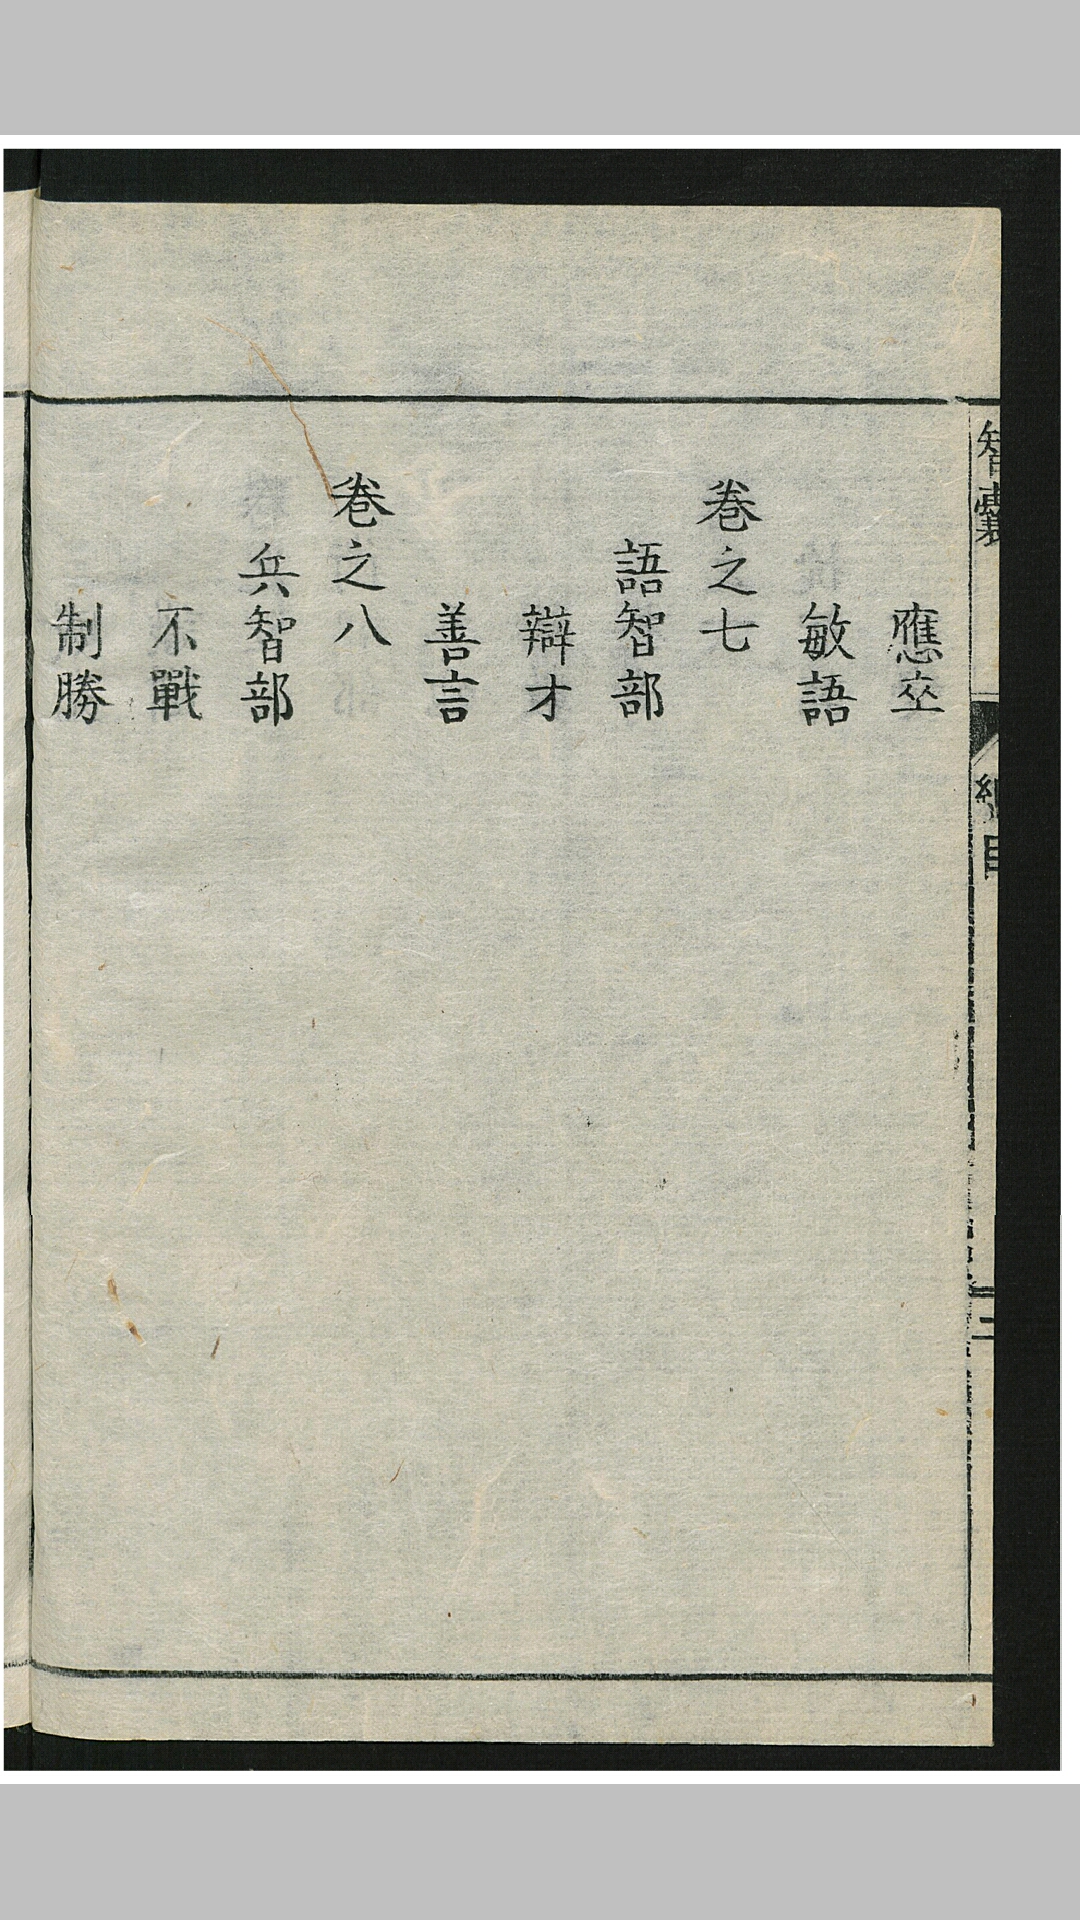 智囊
總目
二
應卒
敏語
卷之七
語智部
辯才
善言
卷之八
兵智部
不戰
制勝